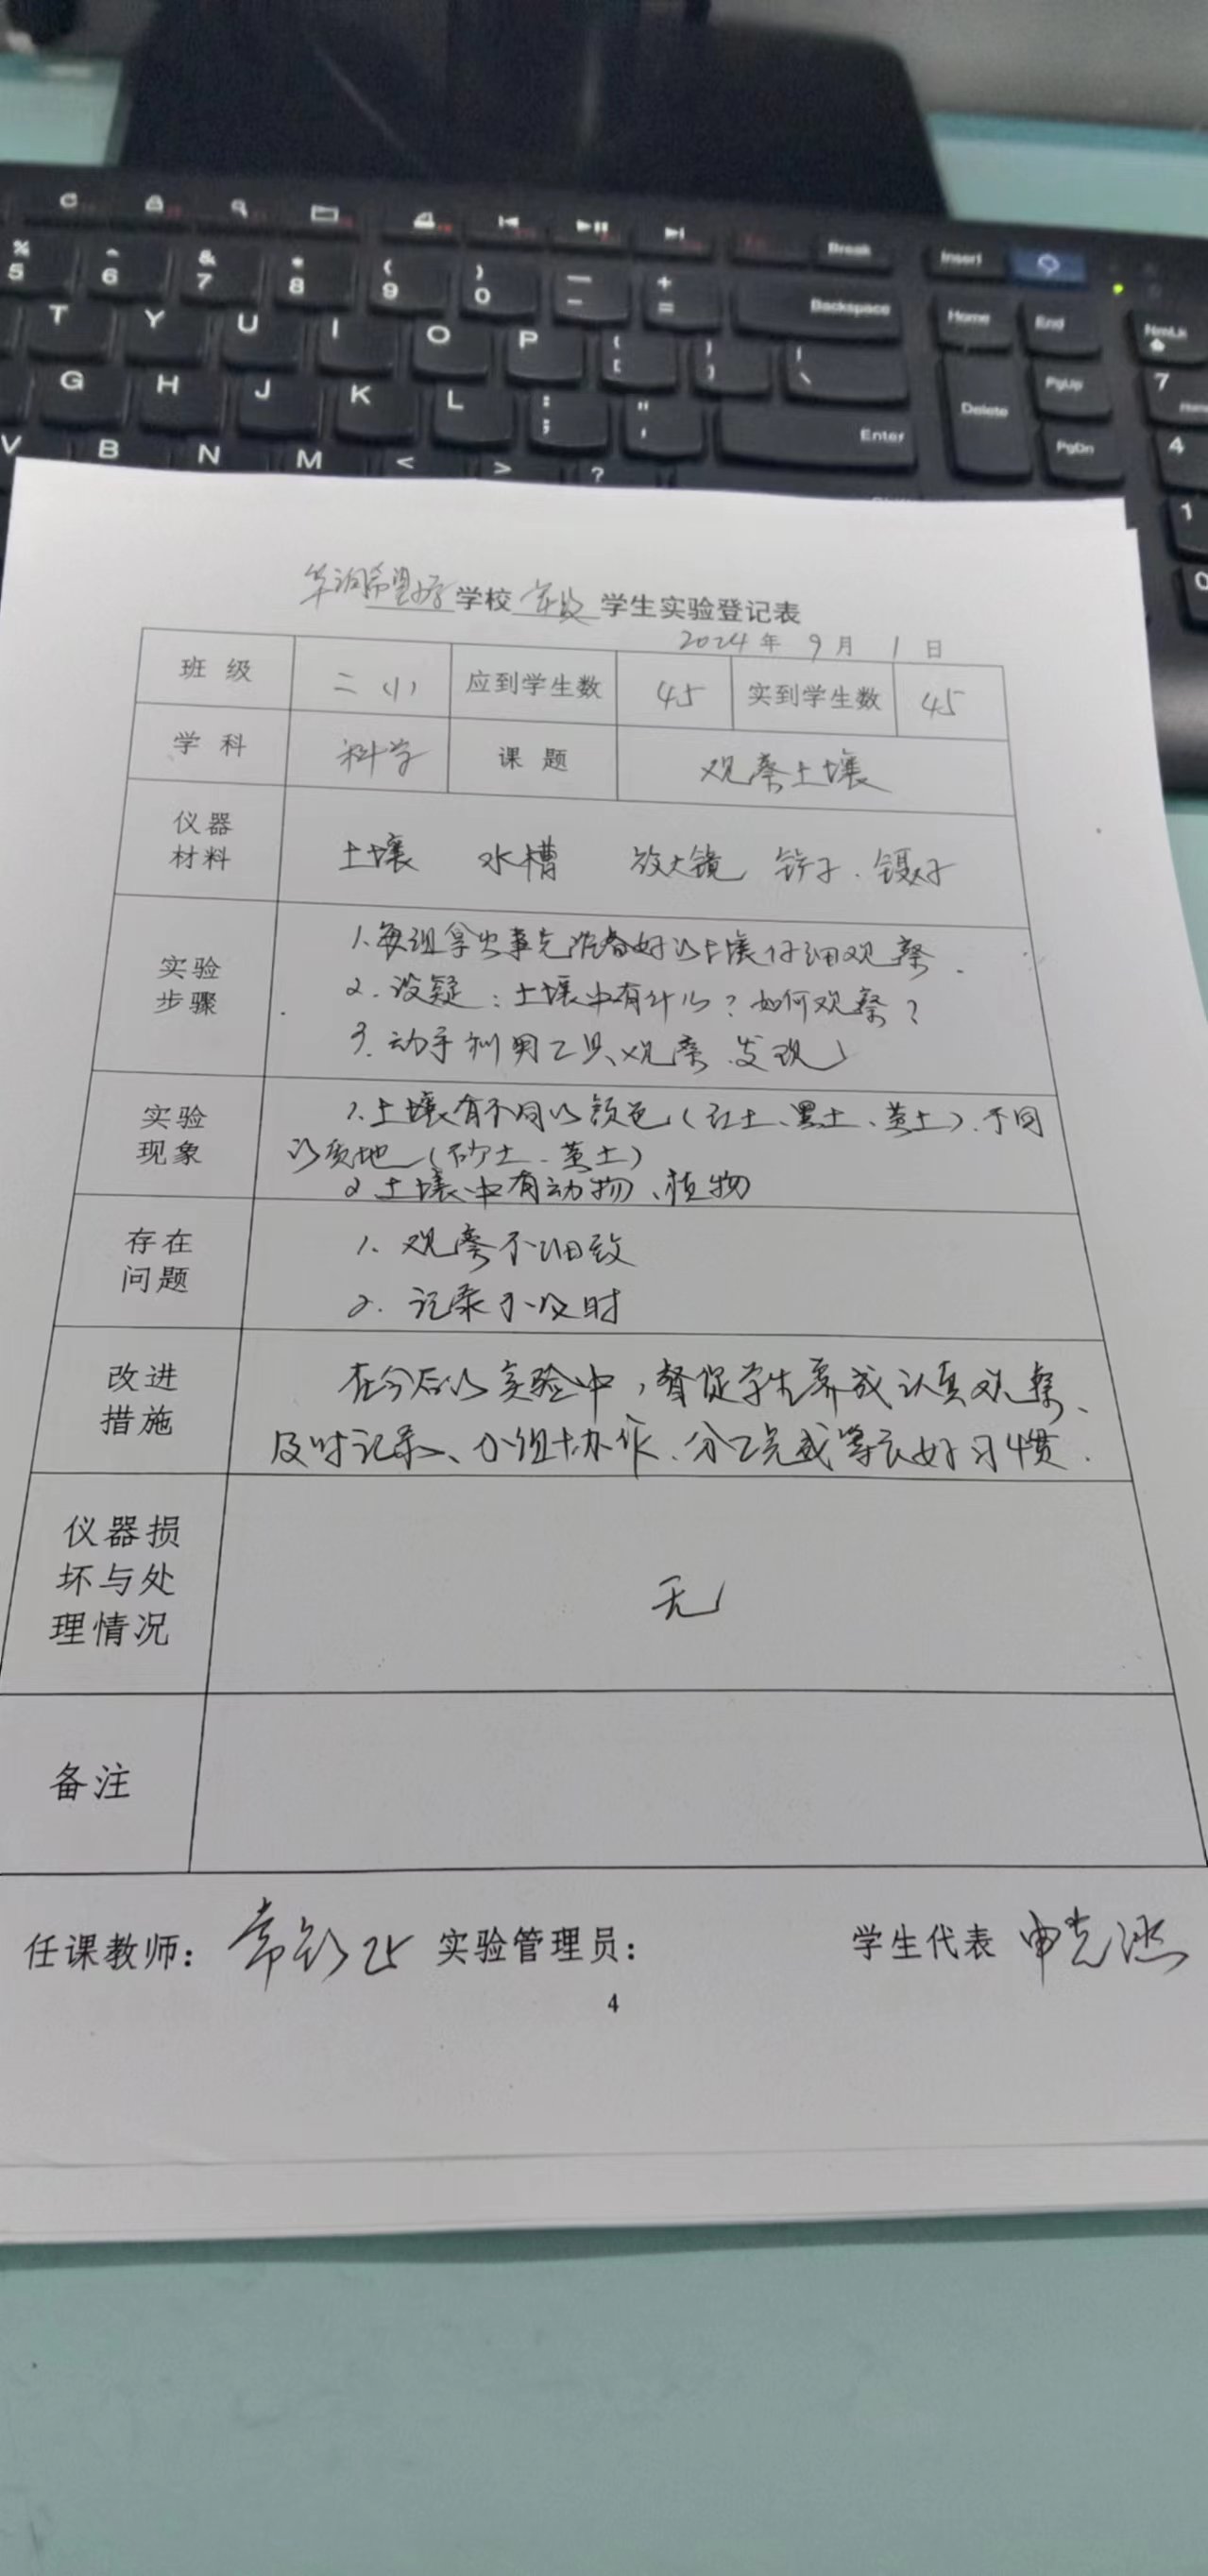 % 5
^ 6
& 7
* 8
( 9
) 0
— -
+ =
Backspace
Break
Insert
Home
End
NmLk
T Y U I O P
{ [
} ]
| \
Delete
PgUp
7
G H J K L
: ;
" '
Enter
PgDn
4
V B N M < > ?
1
0
希望小学学校 学生实验登记表
2024年 9月 1日
班级 二(1) 应到学生数 45 实到学生数 45
学科 科学 课题 观察土壤
仪器
材料
土壤 水槽 放大镜 铲子、镊子
实验
步骤
1.每组拿出事先准备好的土壤仔细观察.
2.设疑:土壤中有什么?如何观察?
3.动手利用工具观察、发现
实验
现象
1.土壤有不同的颜色(红土、黑土、黄土)、不同
的质地(砂土、黄土)
2土壤中有动物、植物
存在
问题
1.观察不细致
2.记录不及时
改进
措施
在今后的实验中,督促学生养成认真观察、
及时记录、小组协作、分工完成等良好习惯.
仪器损
坏与处
理情况
无
备注
任课教师: 实验管理员: 学生代表
4